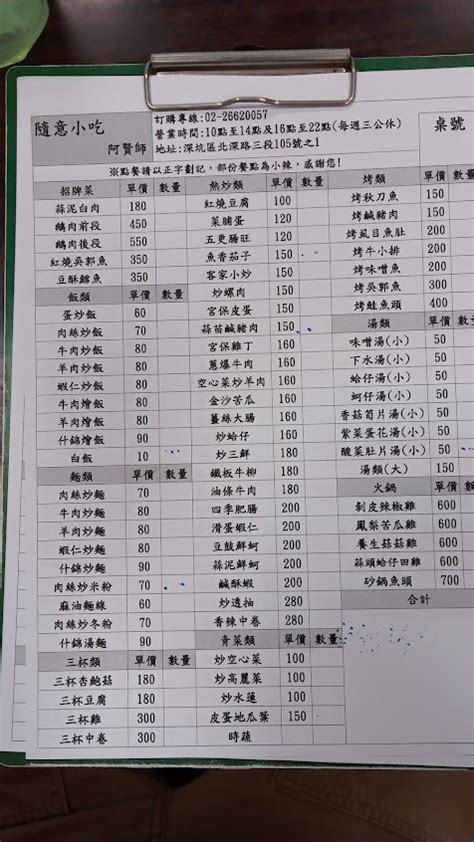 隨意小吃
阿賢師
訂購專線:02-26620057
營業時間:10點至14點及16點至22點(每週三公休)
地址:深坑區北深路三段105號之1
桌號
※點餐請以正字劃記,部份餐點為小辣,感謝您!
招牌菜 單價 數量
蒜泥白肉 180
鵝肉前段 450
鵝肉後段 550
紅燒吳郭魚 350
豆酥鱈魚 350
飯類 單價 數量
蛋炒飯 60
肉絲炒飯 70
牛肉炒飯 80
羊肉炒飯 80
蝦仁炒飯 80
牛肉燴飯 90
羊肉燴飯 90
什錦燴飯 90
白飯 10
麵類 單價 數量
肉絲炒麵 70
牛肉炒麵 80
羊肉炒麵 80
蝦仁炒麵 80
什錦炒麵 90
肉絲炒米粉 70
麻油麵線 60
肉絲炒冬粉 70
什錦湯麵 90
三杯類 單價 數量
三杯杏鮑菇 180
三杯豆腐 180
三杯雞 300
三杯中卷 300
熱炒類 單價 數量
紅燒豆腐 100
菜脯蛋 120
五更腸旺 120
魚香茄子 150
客家小炒 150
炒螺肉 150
宮保皮蛋 150
蒜苗鹹豬肉 150
宮保雞丁 160
蔥爆牛肉 160
空心菜炒羊肉 160
金沙苦瓜 160
薑絲大腸 160
炒蛤仔 160
炒三鮮 180
鐵板牛柳 180
油條牛肉 180
四季肥腸 200
滑蛋蝦仁 200
豆鼓鮮蚵 200
蒜泥鮮蚵 200
鹹酥蝦 200
炒透抽 280
香辣中卷 280
青菜類 單價 數量
炒空心菜 100
炒高麗菜 100
炒水蓮 100
皮蛋地瓜葉 150
時蔬
烤類 單價 數量
烤秋刀魚 150
烤鹹豬肉 150
烤虱目魚肚 200
烤牛小排 200
烤味噌魚 200
烤吳郭魚 350
烤鮭魚頭 400
湯類 單價 數量
味噌湯(小) 50
下水湯(小) 50
蛤仔湯(小) 50
蚵仔湯(小) 50
香菇筍片湯(小) 50
紫菜蛋花湯(小) 50
酸菜肚片湯(小) 50
湯類(大) 150
火鍋 單價 數量
剝皮辣椒雞 600
鳳梨苦瓜雞 600
養生菇菇雞 600
蒜頭蛤仔田雞 600
砂鍋魚頭 700
合計